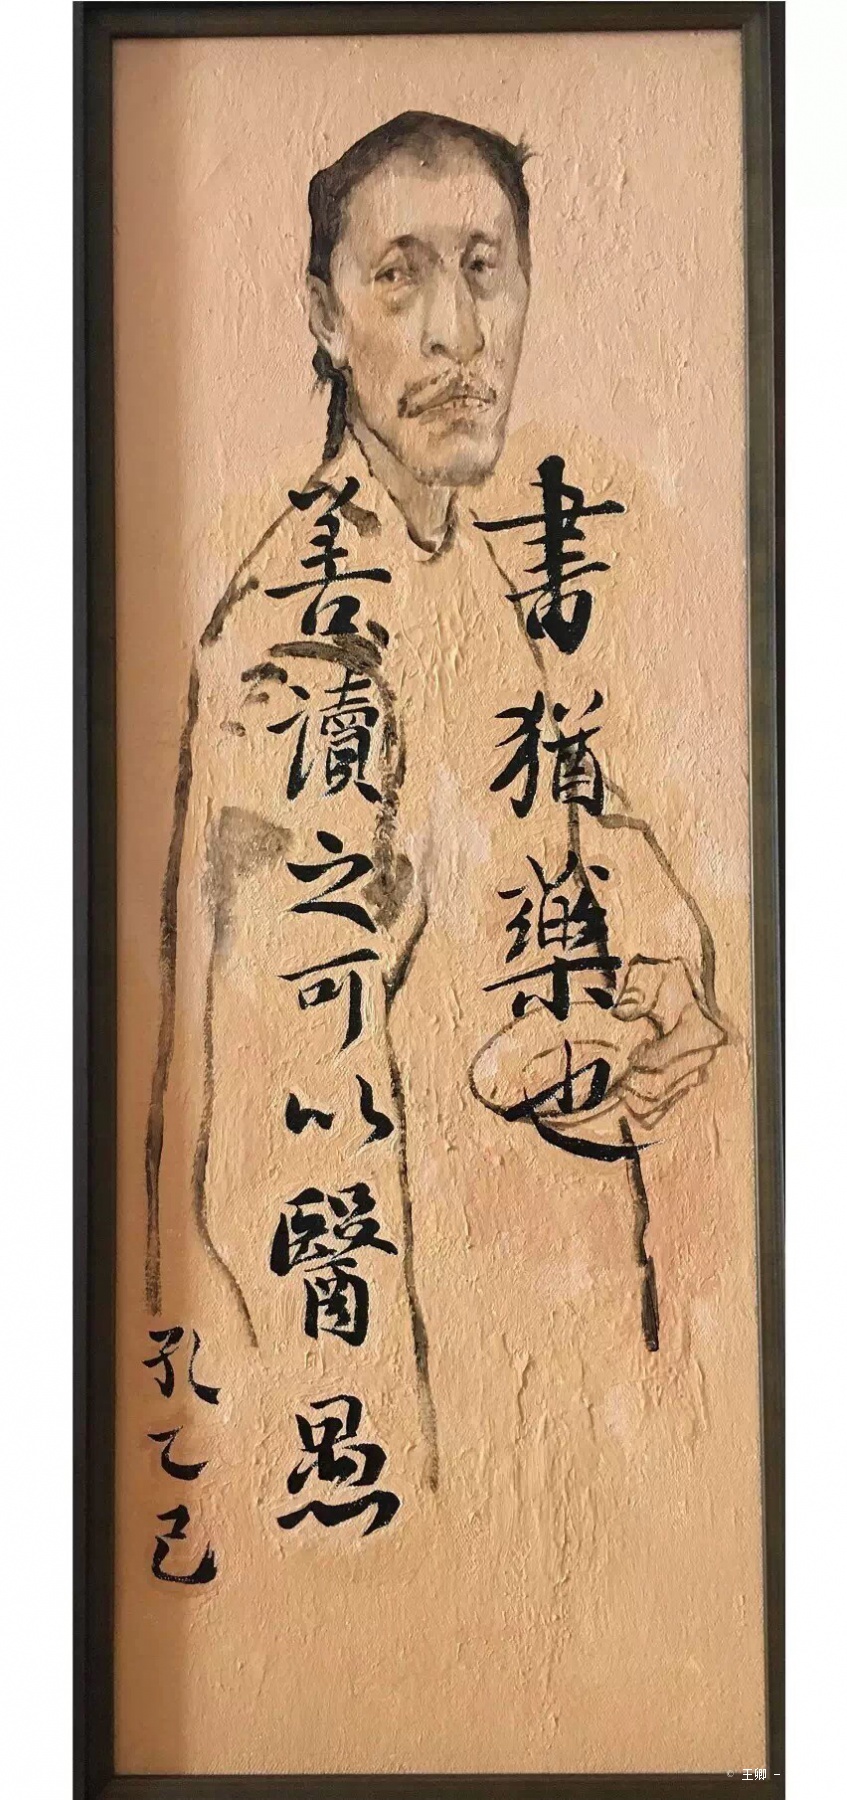 書猶藥也
善讀之可以醫愚
孔乙己
© 王卿 -